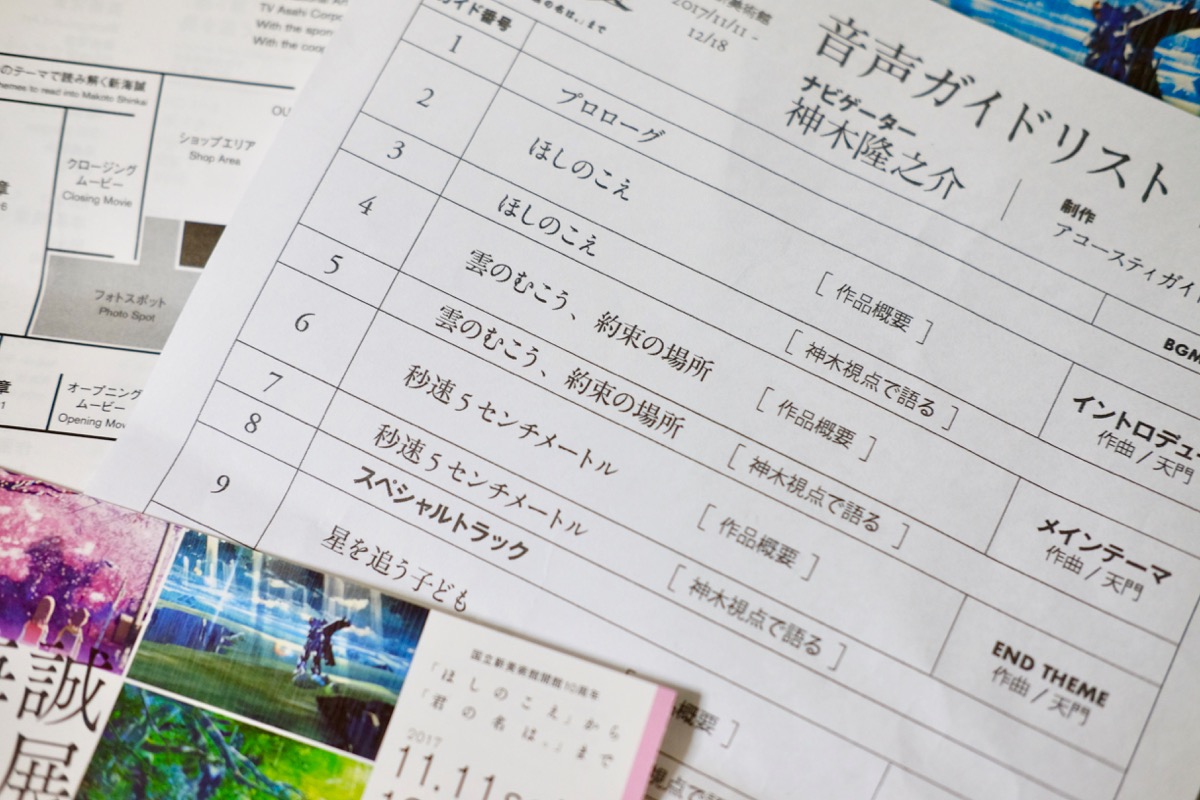 TV Asahi Corpo
With the spon
With the coop
のテーマで読み解く新海誠
hemes to read into Makoto Shinkai
クロージング
ムービー
Closing Movie
ショップエリア
Shop Area
OU
章
フォトスポット
Photo Spot
章
オープニング
ムービー
Opening Mov
ガイド番号
』まで
美術館
2017/11/11 -
12/18
音声ガイドリスト
ナビゲーター
神木隆之介
制作
アコースティガイ
BGM
1
プロローグ
2
ほしのこえ
[ 作品概要 ]
イントロデュー
作曲 / 天門
3
ほしのこえ
[ 神木視点で語る ]
4
雲のむこう、約束の場所
[ 作品概要 ]
メインテーマ
作曲 / 天門
5
雲のむこう、約束の場所
[ 神木視点で語る ]
6
秒速5センチメートル
[ 作品概要 ]
END THEME
作曲 / 天門
7
秒速5センチメートル
[ 神木視点で語る ]
8
スペシャルトラック
9
星を追う子ども
概要 ]
視点で語る ]
誠
展
国立新美術館開館10周年
「ほしのこえ」から
「君の名は。」まで
2017
11.11